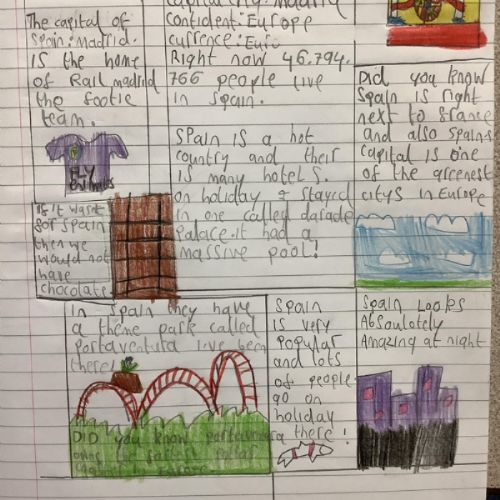 The capital of
Spain: Madrid.
is the home
of Rail madrid
the footie
team.
Fly
Emirates
If it wasnt
for Spain
then we
would not
have
chocolate
capital city: Madrid
Contident: Europe
currence: Euro
Right now 46,794.
766 people live
in Spain.
SPain is a hot
country and their
is many hotels.
on holiday I stayed
in one called
Palace. it had a
massive pool!
DiD you know
Spain is right
next to france
and also Spains
capital is one
of the greenest
citys in Europe
In Spain they have
a theme park called
Portaventura ive been
there!
DID you know portaventura
owns the
in Europe
SPain
is very
popular
and lots
of people
go on
holiday
there!
Spain Looks
Absoulotely
Amazing at night